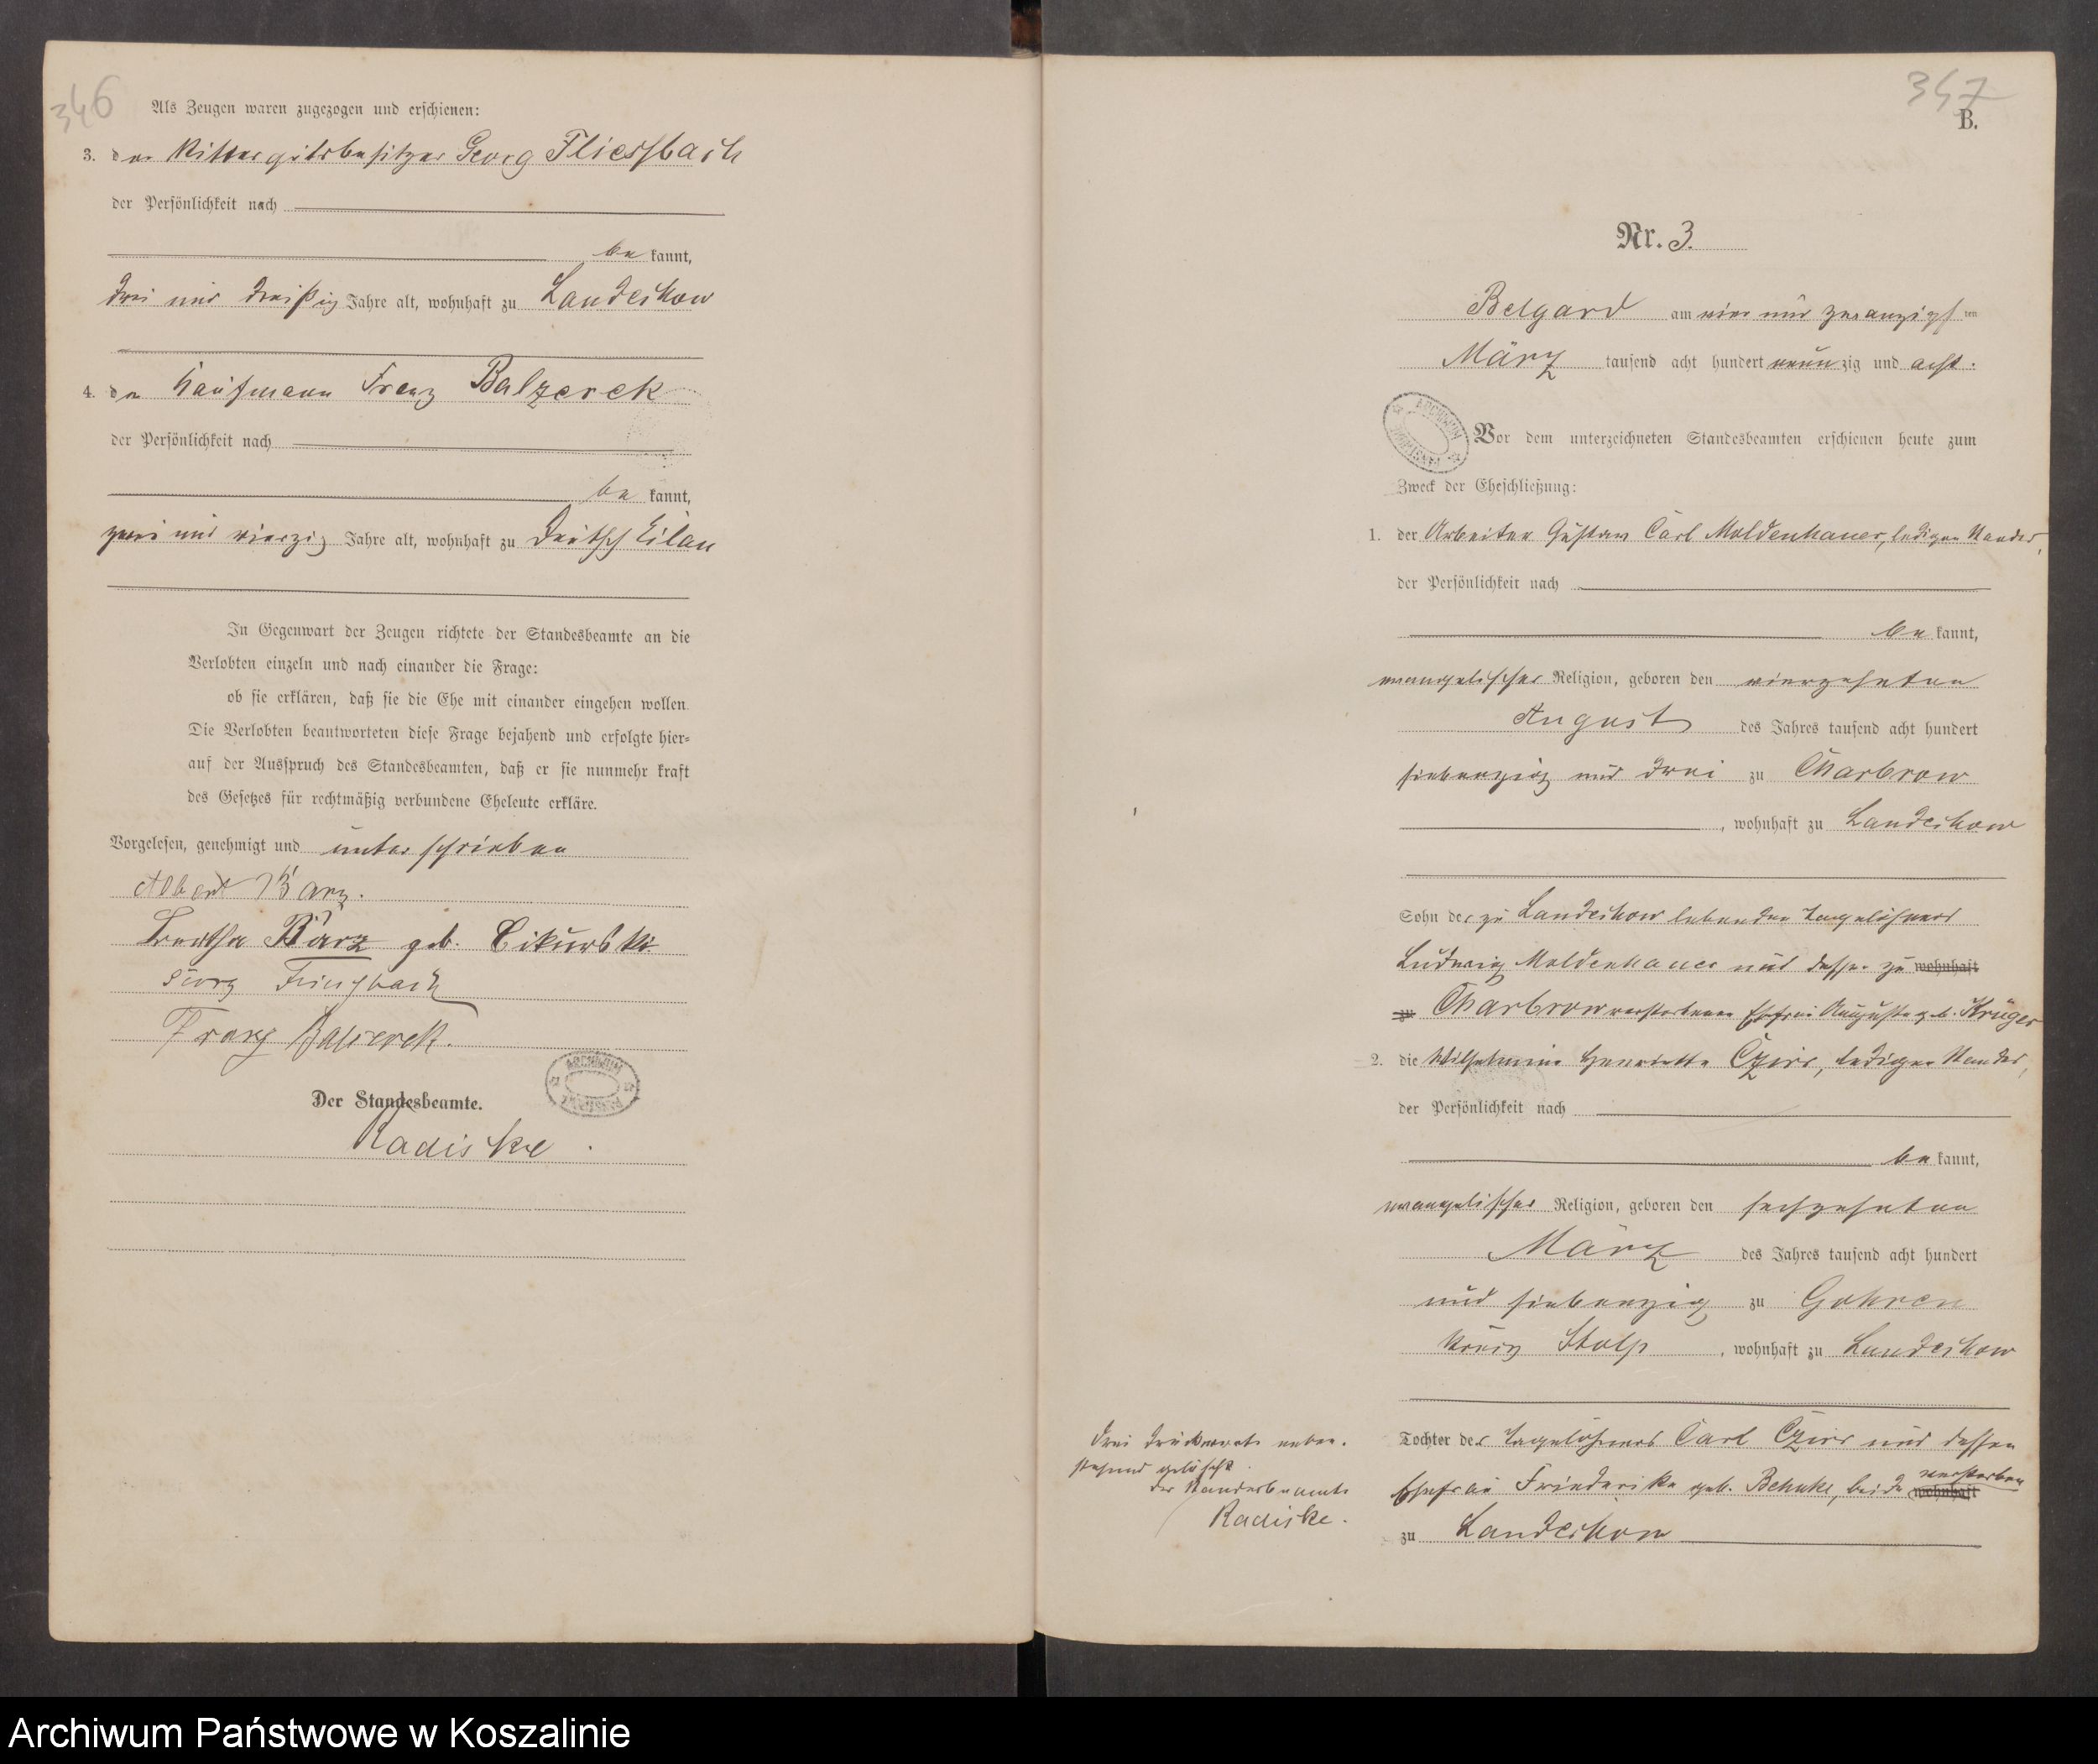 346
Als Zeugen waren zugezogen und erschienen:
3. der Rittergutsbesitzer Georg Fliessbach
der Persönlichkeit nach
be kannt,
drei und dreißig Jahre alt, wohnhaft zu Landechow
4. der Kaufmann Franz Balzerek
der Persönlichkeit nach
be kannt,
zwei und vierzig Jahre alt, wohnhaft zu Deutsch Eilau
In Gegenwart der Zeugen richtete der Standesbeamte an die
Verlobten einzeln und nach einander die Frage:
ob sie erklären, daß sie die Ehe mit einander eingehen wollen.
Die Verlobten beantworteten diese Frage bejahend und erfolgte hier=
auf der Ausspruch des Standesbeamten, daß er sie nunmehr kraft
des Gesetzes für rechtmäßig verbundene Eheleute erkläre.
Vorgelesen, genehmigt und unterschrieben
Albert Bärz.
Bertha Bärz geb. Cikurski.
Georg Fliessbach
Franz Balzerek.
ARCHIWUM
Der Standesbeamte.
Radiske.
347
B.
Nr. 3.
Belgard am vier und zwanzigsten
März tausend acht hundert neunzig und acht.
ARCHIWUM
Vor dem unterzeichneten Standesbeamten erschienen heute zum
Zweck der Eheschließung:
1. der Arbeiter Gustav Carl Moldenhauer, ledigen Standes,
der Persönlichkeit nach
be kannt,
evangelischer Religion, geboren den vierzehnten
August des Jahres tausend acht hundert
siebenzig und drei zu Charbrow
, wohnhaft zu Landechow
Sohn des zu Landechow lebenden Tagelöhners
Ludwig Moldenhauer und dessen zu wohnhaft
zu Charbrow verstorbenen Ehefrau Auguste geb. Krüger
2. die Wilhelmine Henriette Czirr, ledigen Standes,
der Persönlichkeit nach
be kannt,
evangelischer Religion, geboren den sechzehnten
März des Jahres tausend acht hundert
und siebenzig zu Gohren
Kreis Stolp, wohnhaft zu Landechow
Tochter des Tagelöhners Carl Czirr und dessen
Ehefrau Friederike geb. Behnke, beide wohnhaft verstorben
zu Landechow
Drei Druckworte neben-
stehend gelöscht.
Der Standesbeamte
Radiske.
Archiwum Państwowe w Koszalinie